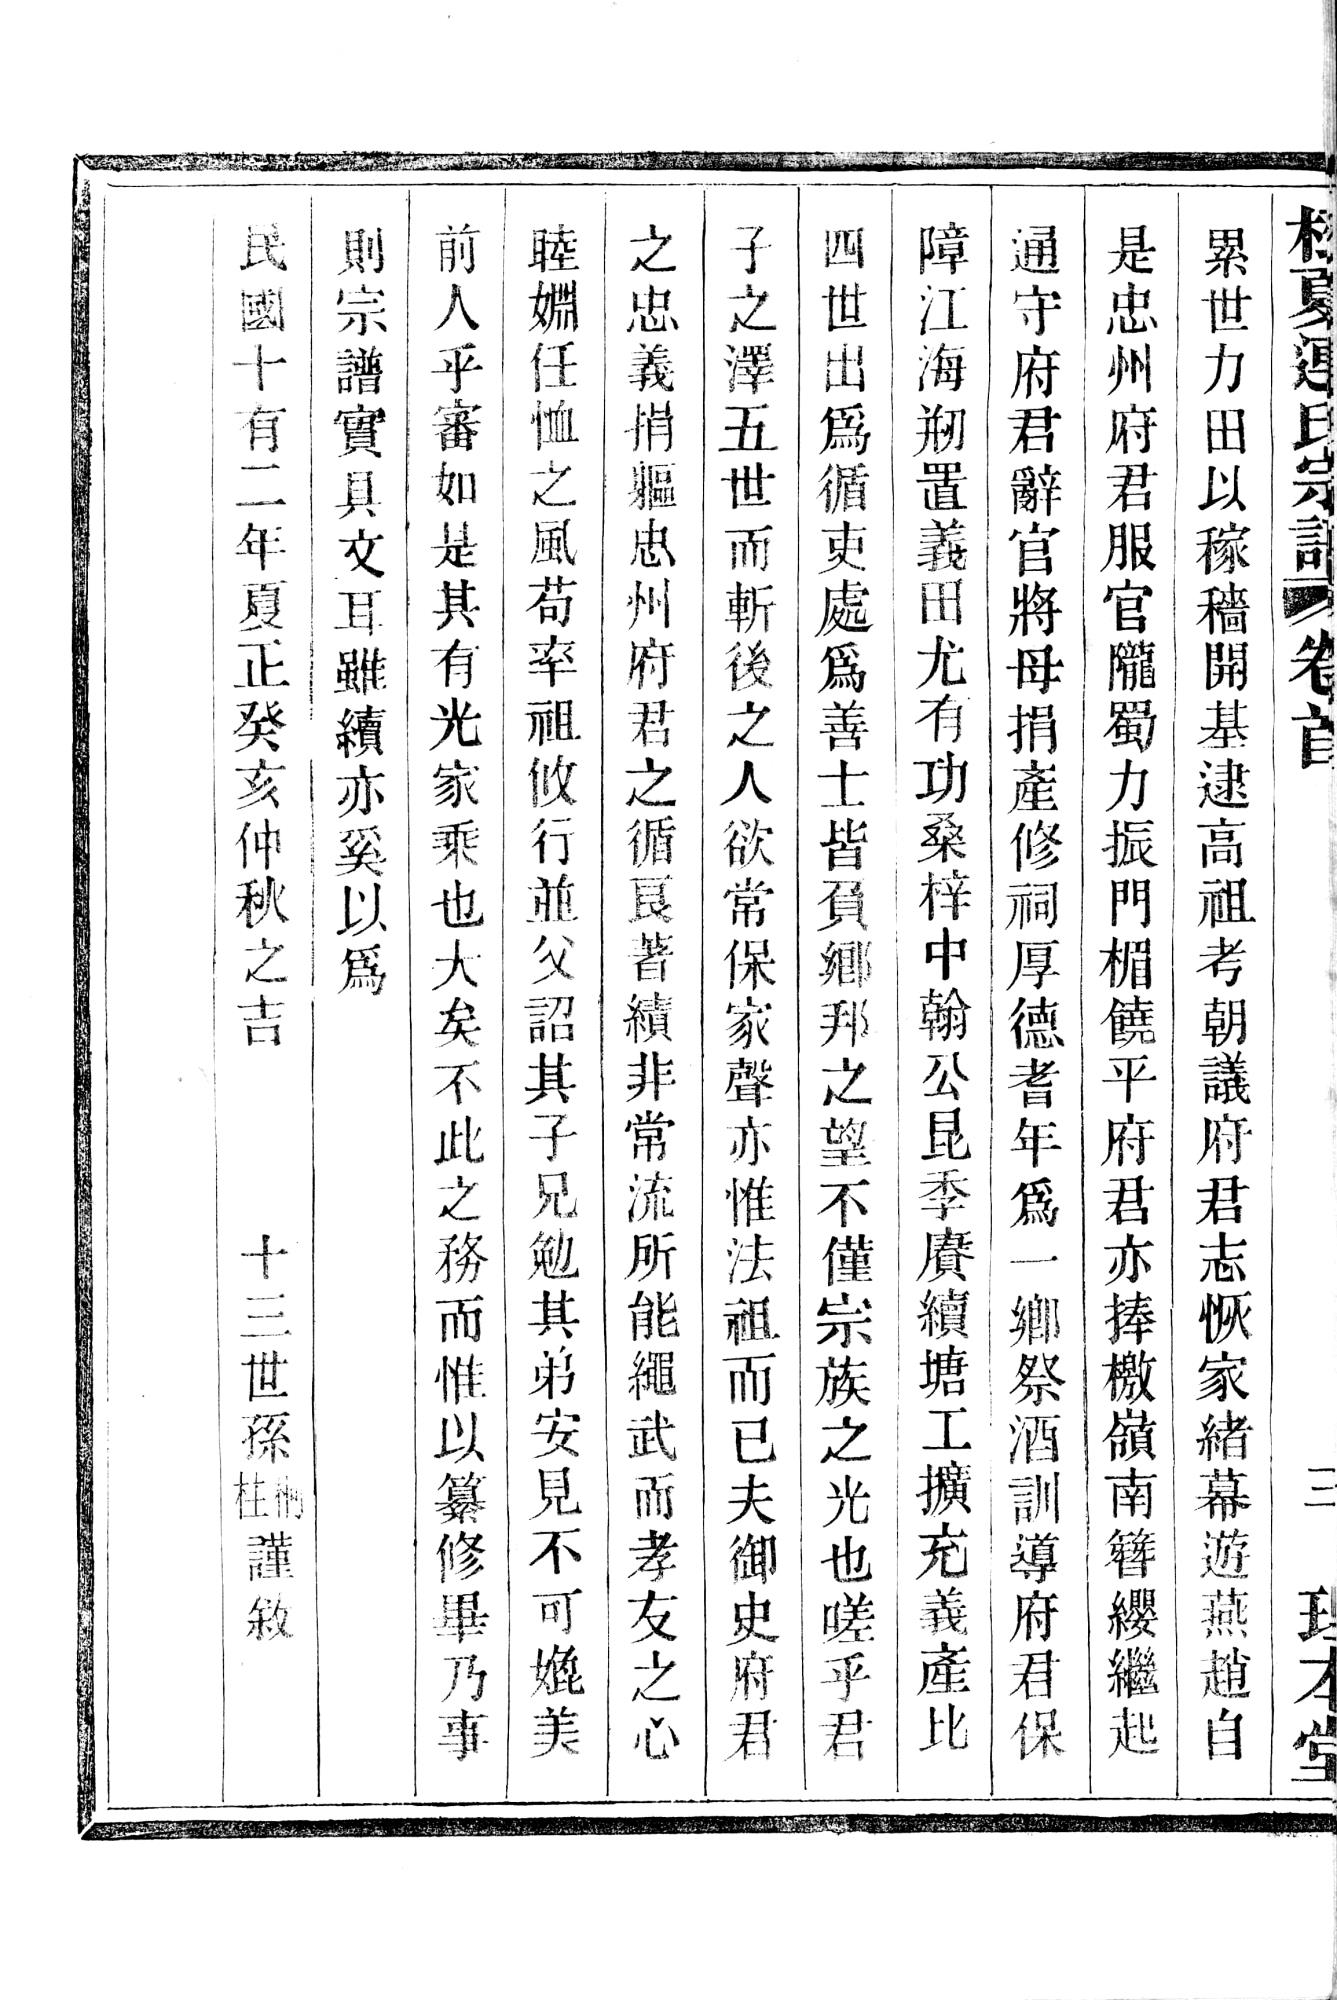 夏連氏宗譜 卷首 三 理本堂
累世力田以稼穡開基逮高祖考朝議府君志恢家緒幕遊燕趙自
是忠州府君服官隴蜀力振門楣饒平府君亦捧檄嶺南簪纓繼起
通守府君辭官將母捐產修祠厚德耆年爲一鄉祭酒訓導府君保
障江海剏置義田尤有功桑梓中翰公昆季賡續塘工擴充義產比
四世出爲循吏處爲善士皆負鄉邦之望不僅宗族之光也嗟乎君
子之澤五世而斬後之人欲常保家聲亦惟法祖而已夫御史府君
之忠義捐軀忠州府君之循良著績非常流所能繩武而孝友之心
睦婣任恤之風苟率祖攸行並父詔其子兄勉其弟安見不可媲美
前人乎審如是其有光家乘也大矣不此之務而惟以纂修畢乃事
則宗譜實具文耳雖續亦奚以爲
民國十有二年夏正癸亥仲秋之吉 十三世孫 桂 謹敘